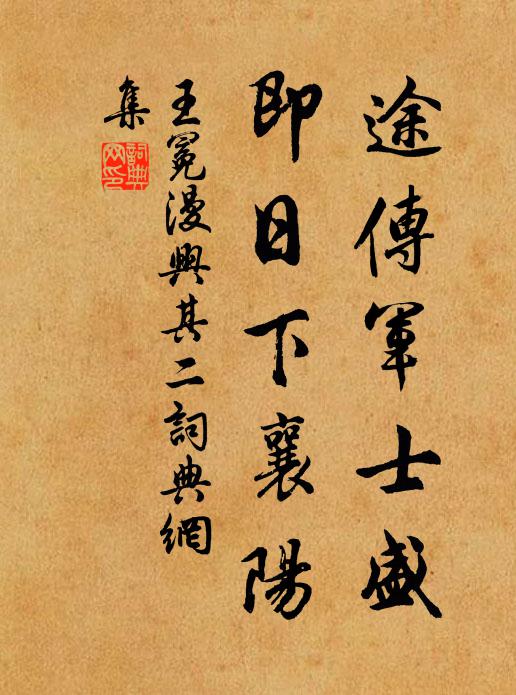 途傳軍士盛
即日下襄陽
王冕漫興其二詞典網
集
詞典
网印